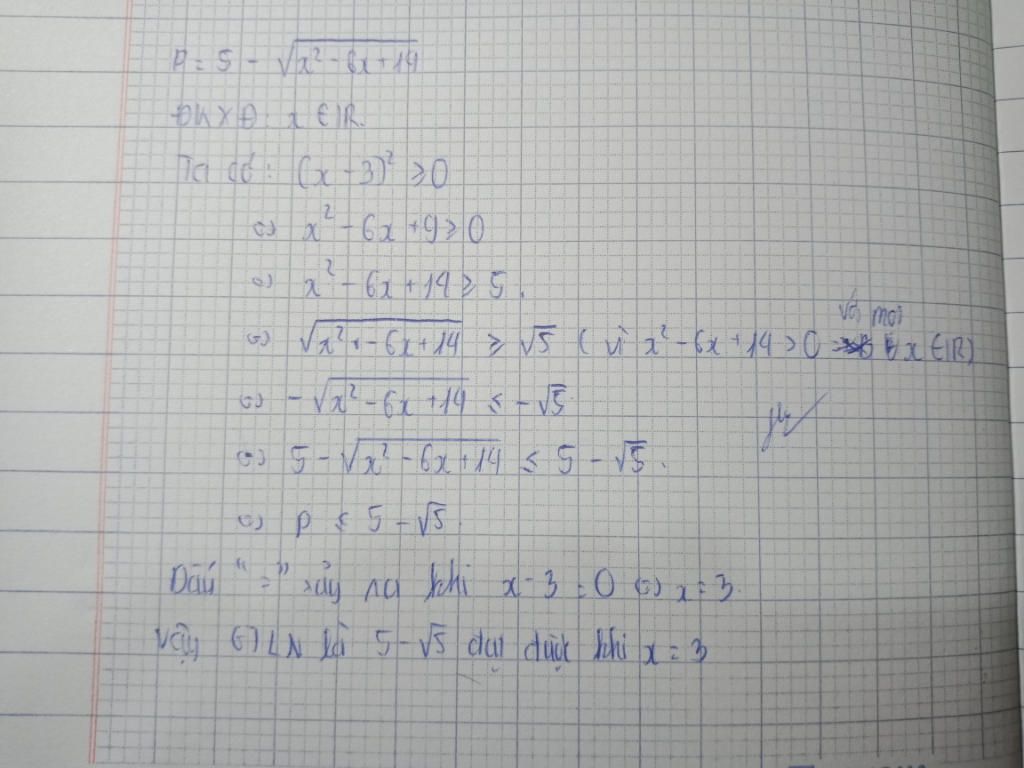 P = 5 - √(x² - 6x + 14)
ĐKXĐ: x ∈ ℝ.
Ta có: (x - 3)² ≥ 0
⇔ x² - 6x + 9 ≥ 0
⇔ x² - 6x + 14 ≥ 5.
⇔ √(x² - 6x + 14) ≥ √5 (vì x² - 6x + 14 > 0 với mọi x ∈ ℝ)
⇔ -√(x² - 6x + 14) ≤ -√5
⇔ 5 - √(x² - 6x + 14) ≤ 5 - √5.
⇔ P ≤ 5 - √5.
Dấu "=" xảy ra khi x - 3 = 0 ⇔ x = 3.
Vậy GTLN là 5 - √5 đạt được khi x = 3